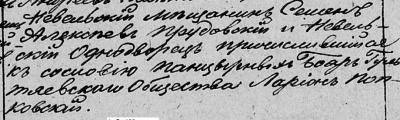 Невельский Мѣщанинъ Семенъ
Алексѣевъ Прудовскій и Невель-
скій Однодворецъ причислившійся
къ сословію панцырныхъ Бояръ Гуль-
тяевскаго Общества Ларіонъ Поп-
ковскій.